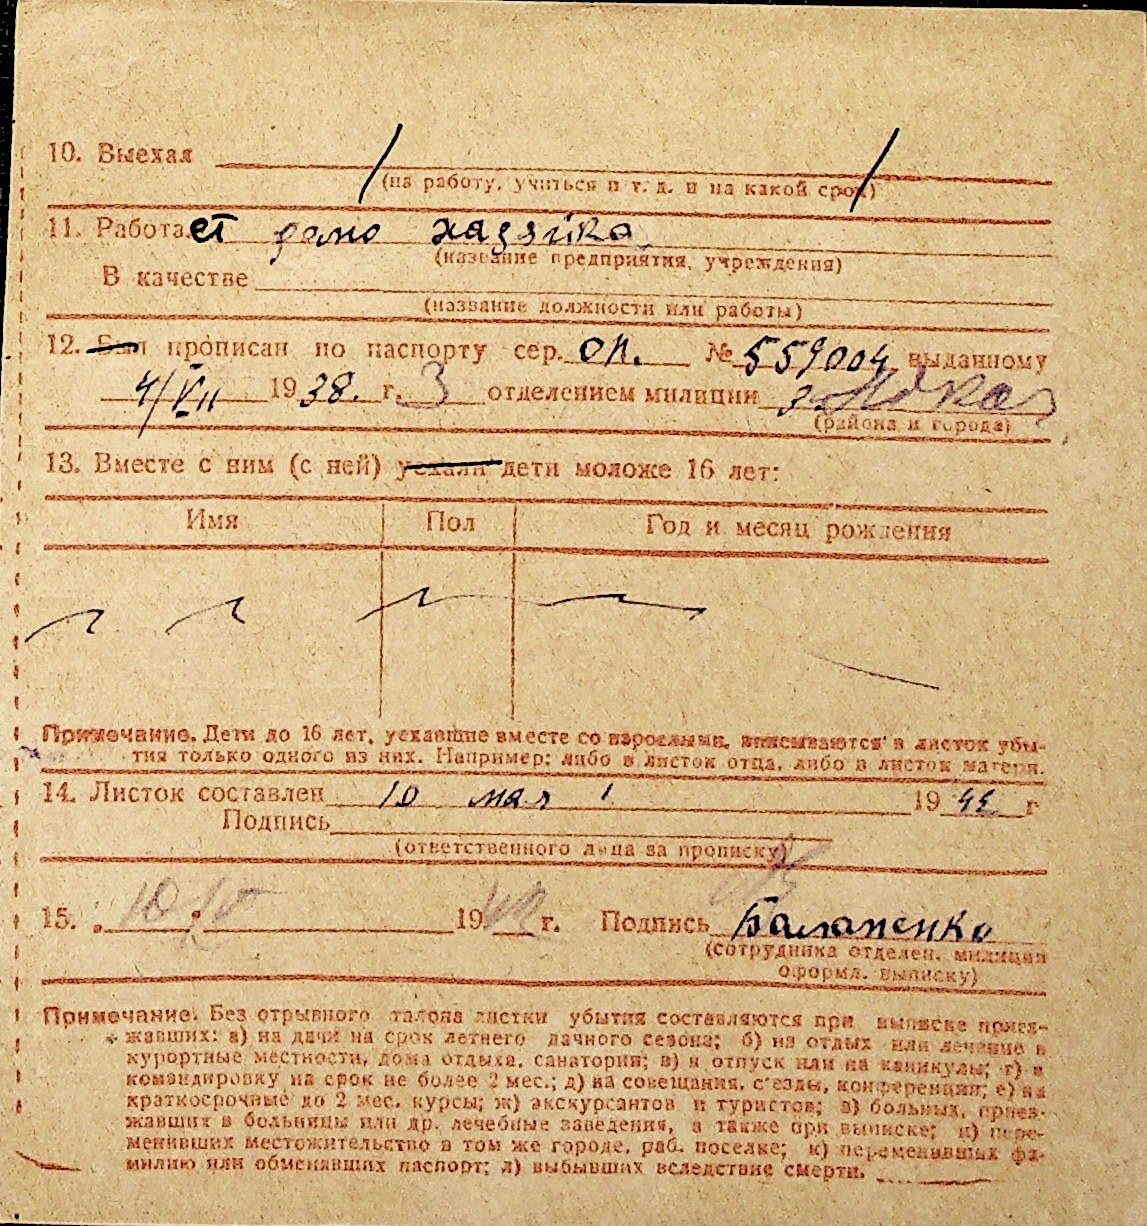 10. Выехал
(на работу, учиться и т. д. и на какой срок)
11. Работает домо хазяйка
(название предприятия, учреждения)
В качестве
(название должности или работы)
12. Был прописан по паспорту сер. ОП. № 559004 выданному
4/VII 1938. г. 3 отделением милиции
(района и города)
13. Вместе с ним (с ней) уехали дети моложе 16 лет:
Имя Пол Год и месяц рождения
Примечание. Дети до 16 лет, уехавшие вместе со взрослыми, вписываются в листок убы-
тия только одного из них. Например: либо в листок отца, либо в листок матери.
14. Листок составлен 10 мая 19 г
Подпись
(ответственного лица за прописку)
15. 10 19 г. Подпись
(сотрудника отделен. милиции
оформл. выписку)
Примечание: Без отрывного талона листки убытия составляются при выписке приез-
жавших: а) на дачи на срок летнего дачного сезона; б) на отдых или лечение в
курортные местности, дома отдыха, санатории; в) в отпуск или на каникулы; г) в
командировку на срок не более 2 мес.; д) на совещания, с'езды, конференции; е) на
краткосрочные до 2 мес. курсы; ж) экскурсантов и туристов; з) больных, приез-
жавших в больницы или др. лечебные заведения, а также при выписке; и) пере-
менивших местожительство в том же городе, раб. поселке; к) переменивших фа-
милию или обменявших паспорт; л) выбывших вследствие смерти.